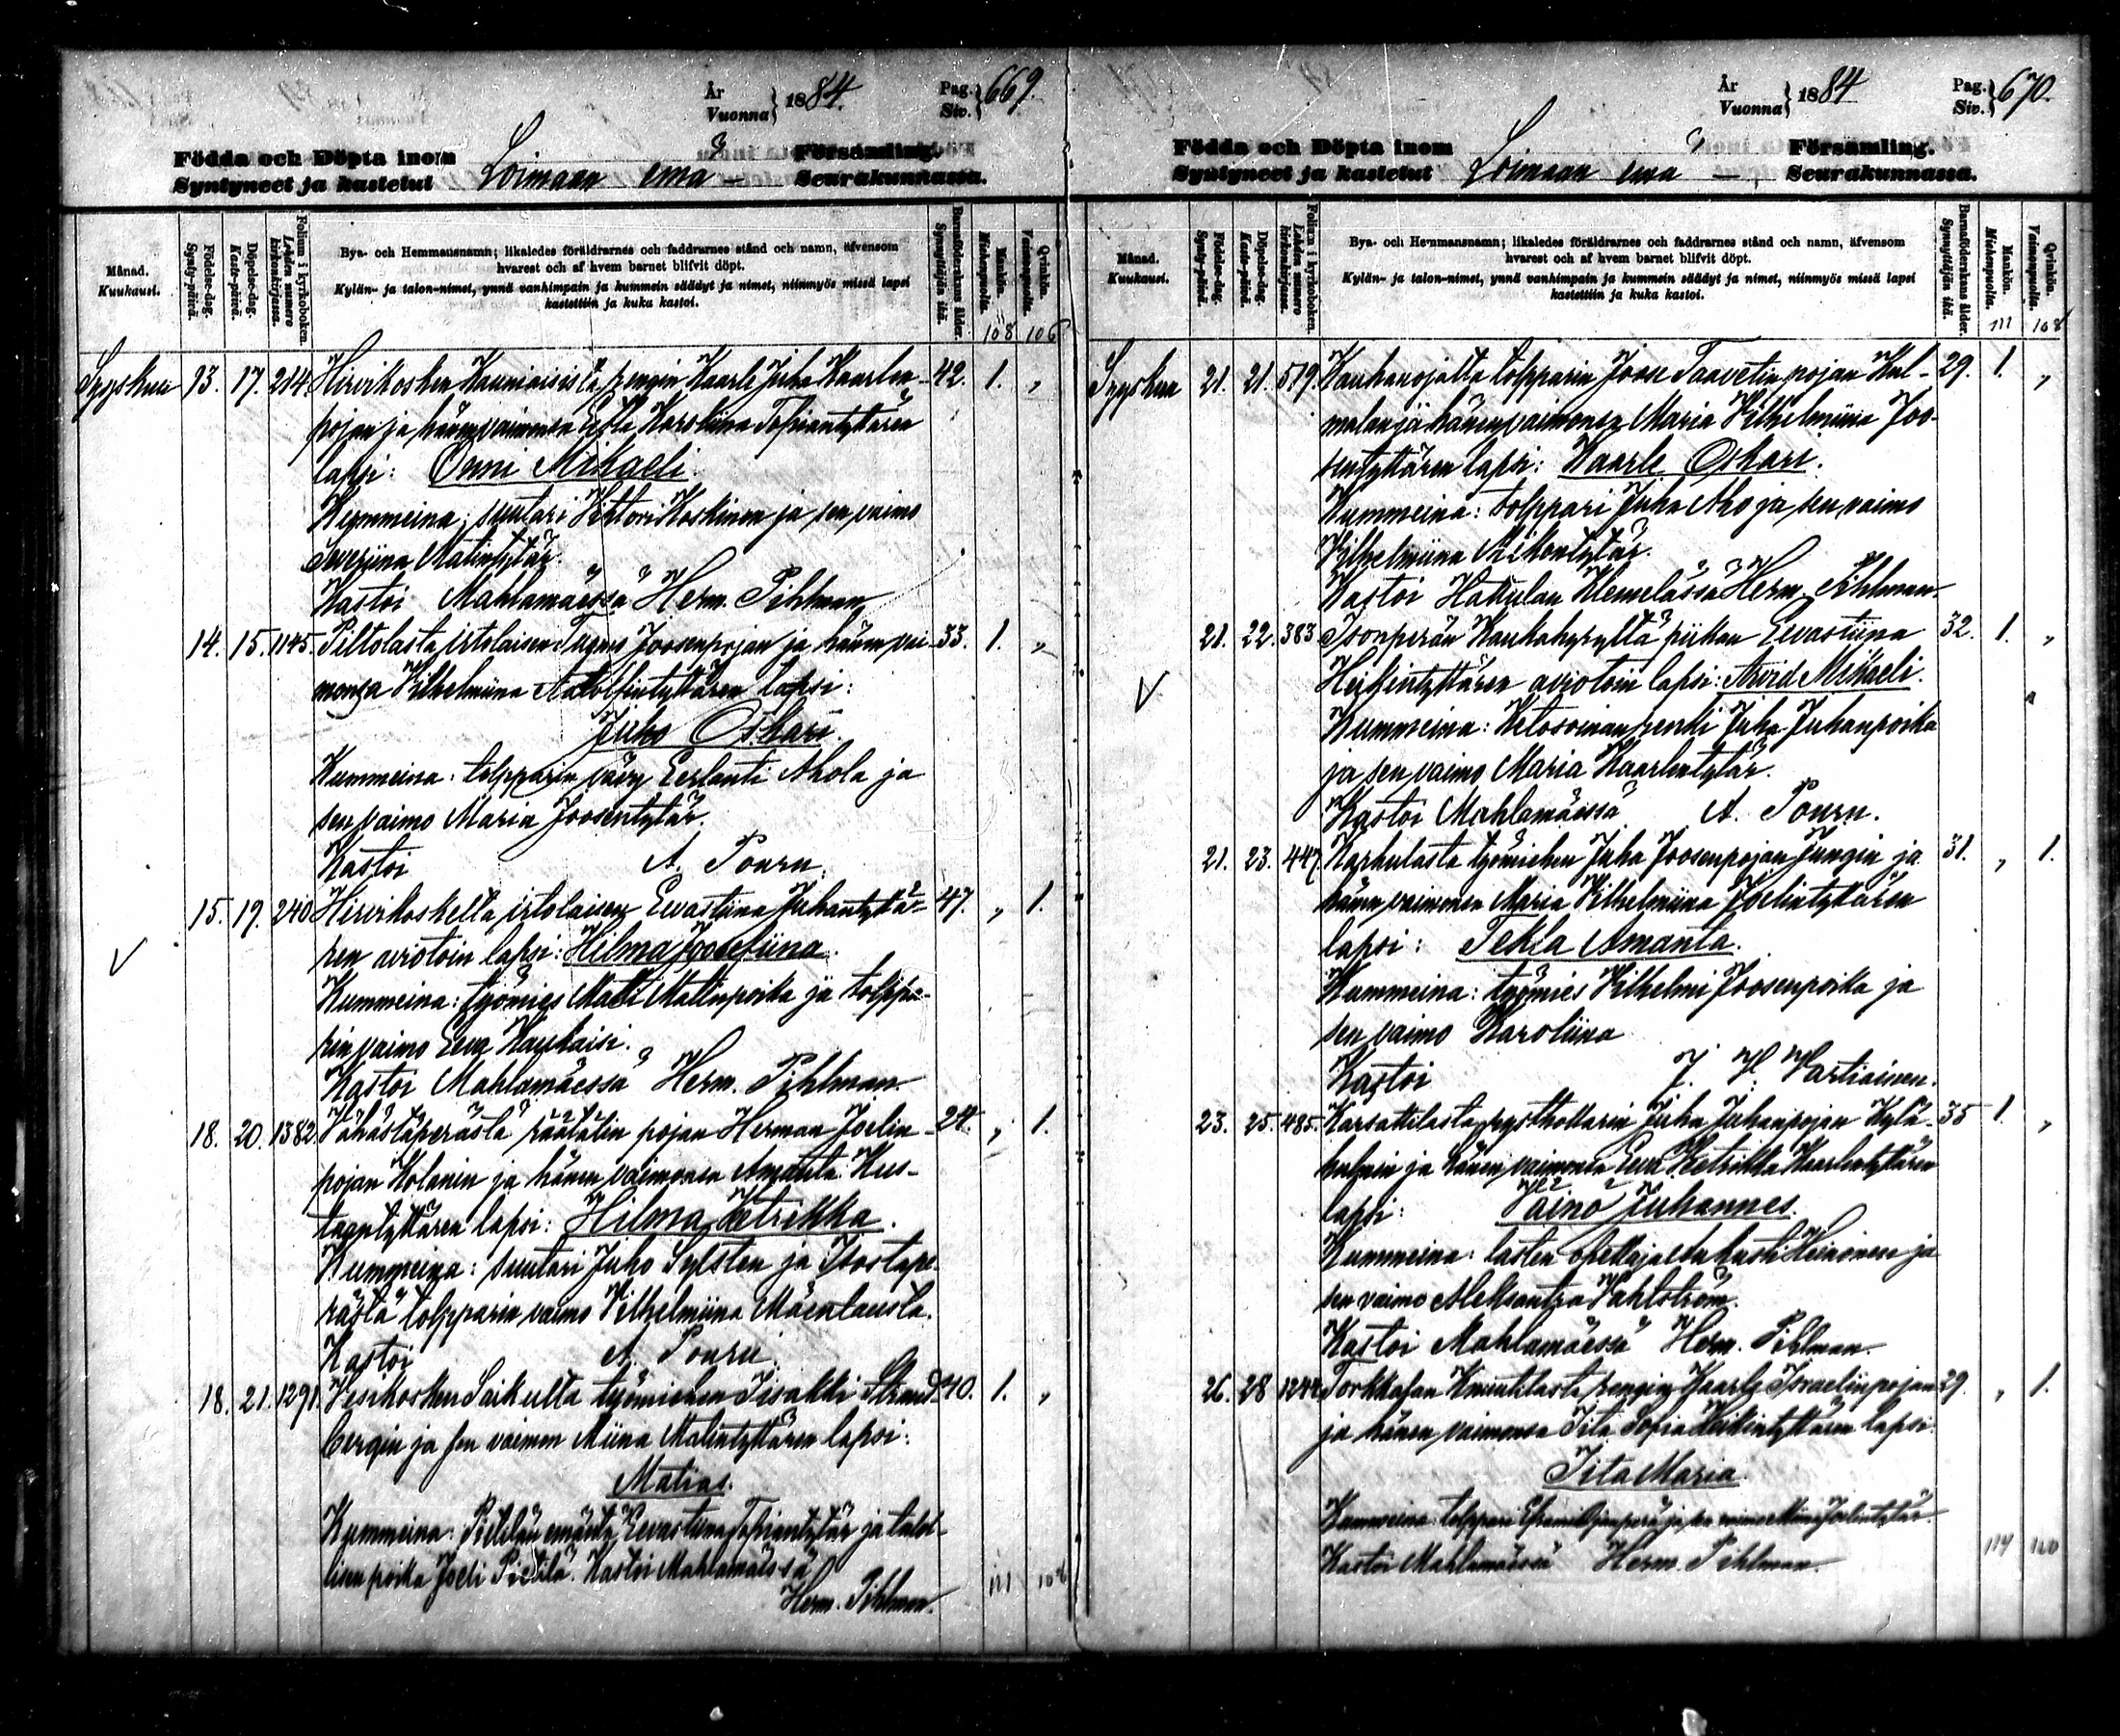 År
Vuonna } 1884.
Pag.
Siv. } 669.
Födda och Döpta inom
Syntyneet ja kastetut
Loimaan emä –
Församling.
Seurakunnassa.
Månad.
Kuukausi.
Födelse-dag.
Synty-päivä.
Döpelse-dag.
Kaste-päivä.
Folium i kyrkoboken.
Lehden numero kirkonkirjassa.
Bya- och Hemmansnamn; likaledes föräldrarnes och faddrarnes stånd och namn, äfvensom
hvarest och af hvem barnet blifvit döpt.
Kylän- ja talon-nimet, ynnä vanhimpain ja kummein säädyt ja nimet, niinmyös missä lapsi
kastettiin ja kuka kastoi.
Barnaföderskans ålder.
Synnyttäjän ikä.
Mankön.
Miehenpuolta.
Qvinkön.
Vaimonpuolta.
108 106
Syyskuu 13. 17. 214. Hirvikosken Kauniaisista rengin Kaarle Juha Kaarlen- 42. 1. „
pojan ja hänen vaimonsa Eeva Karoliina Topiantyttären
lapsi: Onni Mikaeli.
Kummeina: suutari Vihtori Koskinen ja sen vaimo
Severiina Matintytär.
Kastoi Mahlamäessä Herm. Pihlman
14. 15. 1145. Piltolasta irtolaisen Joosenpojan ja hänen vai- 33. 1. „
monsa Vilhelmiina Aatolfintyttären lapsi:
Juho Oskari.
Kummeina: torpparin vävy Eerlanti Ahola ja
sen vaimo Maria Joosentytär.
Kastoi A. Pouru.
15. 19. 240. Hirvikoskelta irtolaisen Eevastiina Juhantyttä- 47. „ 1.
ren aviotoin lapsi: Hilma Joosefiina.
Kummeina: työmies Matti Matinpoika ja torppa-
rin vaimo Eeva
Kastoi Mahlamäessä Herm. Pihlman.
18. 20. 1382. Vähästäperästä räätälin pojan Herman Joelin- 24. „ 1.
pojan Kolanin ja hänen vaimonsa Amanta Kus-
taantyttären lapsi: Hilma Ketrikka.
Kummeina: suutari Juho Sylsten ja Isostape-
rästä torpparin vaimo Vilhelmiina Mäentausta.
Kastoi A. Pouru.
18. 21. 1291. Vesikosken Saikulta työmiehen Iisakki Strand- 40. 1. „
bergin ja sen vaimon Miina Matintyttären lapsi:
Matias.
Kummeina: Pietilän emäntä Eevastiina Topiantytär ja talol-
lisen poika Joeli Pietilä. Kastoi Mahlamäessä
Herm. Pihlman.
111 108
År
Vuonna } 1884
Pag.
Siv. } 670.
Födda och Döpta inom
Syntyneet ja kastetut
Loimaan emä –
Församling.
Seurakunnassa.
Månad.
Kuukausi.
Födelse-dag.
Synty-päivä.
Döpelse-dag.
Kaste-päivä.
Folium i kyrkoboken.
Lehden numero kirkonkirjassa.
Bya- och Hemmansnamn; likaledes föräldrarnes och faddrarnes stånd och namn, äfvensom
hvarest och af hvem barnet blifvit döpt.
Kylän- ja talon-nimet, ynnä vanhimpain ja kummein säädyt ja nimet, niinmyös missä lapsi
kastettiin ja kuka kastoi.
Barnaföderskans ålder.
Synnyttäjän ikä.
Mankön.
Miehenpuolta.
Qvinkön.
Vaimonpuolta.
111 108
Syyskuu 21. 21. 519. Kauhanojalta torpparin Joose Taavetinpojan Kul- 29. 1. „
malan ja hänen vaimonsa Maria Vilhelmiina Joo-
sentyttären lapsi: Kaarle Oskari.
Kummeina: torppari Juha Aho ja sen vaimo
Vilhelmiina Mikontytär.
Kastoi Hattulan Klemelässä Herm. Pihlman.
21. 22. 383. Isonperän Haukahyryltä piikan Eevastiina 32. 1. „
Heikintyttären aviotoin lapsi: Arvid Mikaeli.
Kummeina: Ketosoinan renki Juha Juhanpoika
ja sen vaimo Maria Kaarlentytär.
Kastoi Mahlamäessä A. Pouru.
21. 23. 447. Karhulasta työmiehen Juha Joosenpojan Jungin ja 31. „ 1.
hänen vaimonsa Maria Vilhelmiina Joelintyttären
lapsi: Tekla Amanta.
Kummeina: työmies Vilhelmi Joosenpoika ja
sen vaimo Karoliina
Kastoi J. H. Vartiainen.
23. 25. 485. Karsattilasta pysthollarin Juha Juhanpojan Kylä- 35 1. „
ja hänen vaimonsa Eeva Ketrikka Kaarlentyttären
lapsi: Väinö Juhannes.
Kummeina: lasten opettaja Heinonen ja
sen vaimo Aleksantra Vahlström.
Kastoi Mahlamäessä Herm. Pihlman.
26. 28 1244. Torkkalan Knuutilasta rengin Kaarle Israelinpojan 29. „ 1.
ja hänen vaimonsa Iita Sofia Heikintyttären lapsi:
Iita Maria.
Kummeina: torppari Efraim Ojanperä ja sen vaimo Miina Joelintytär.
Kastoi Mahlamäessä Herm. Pihlman.
114 110